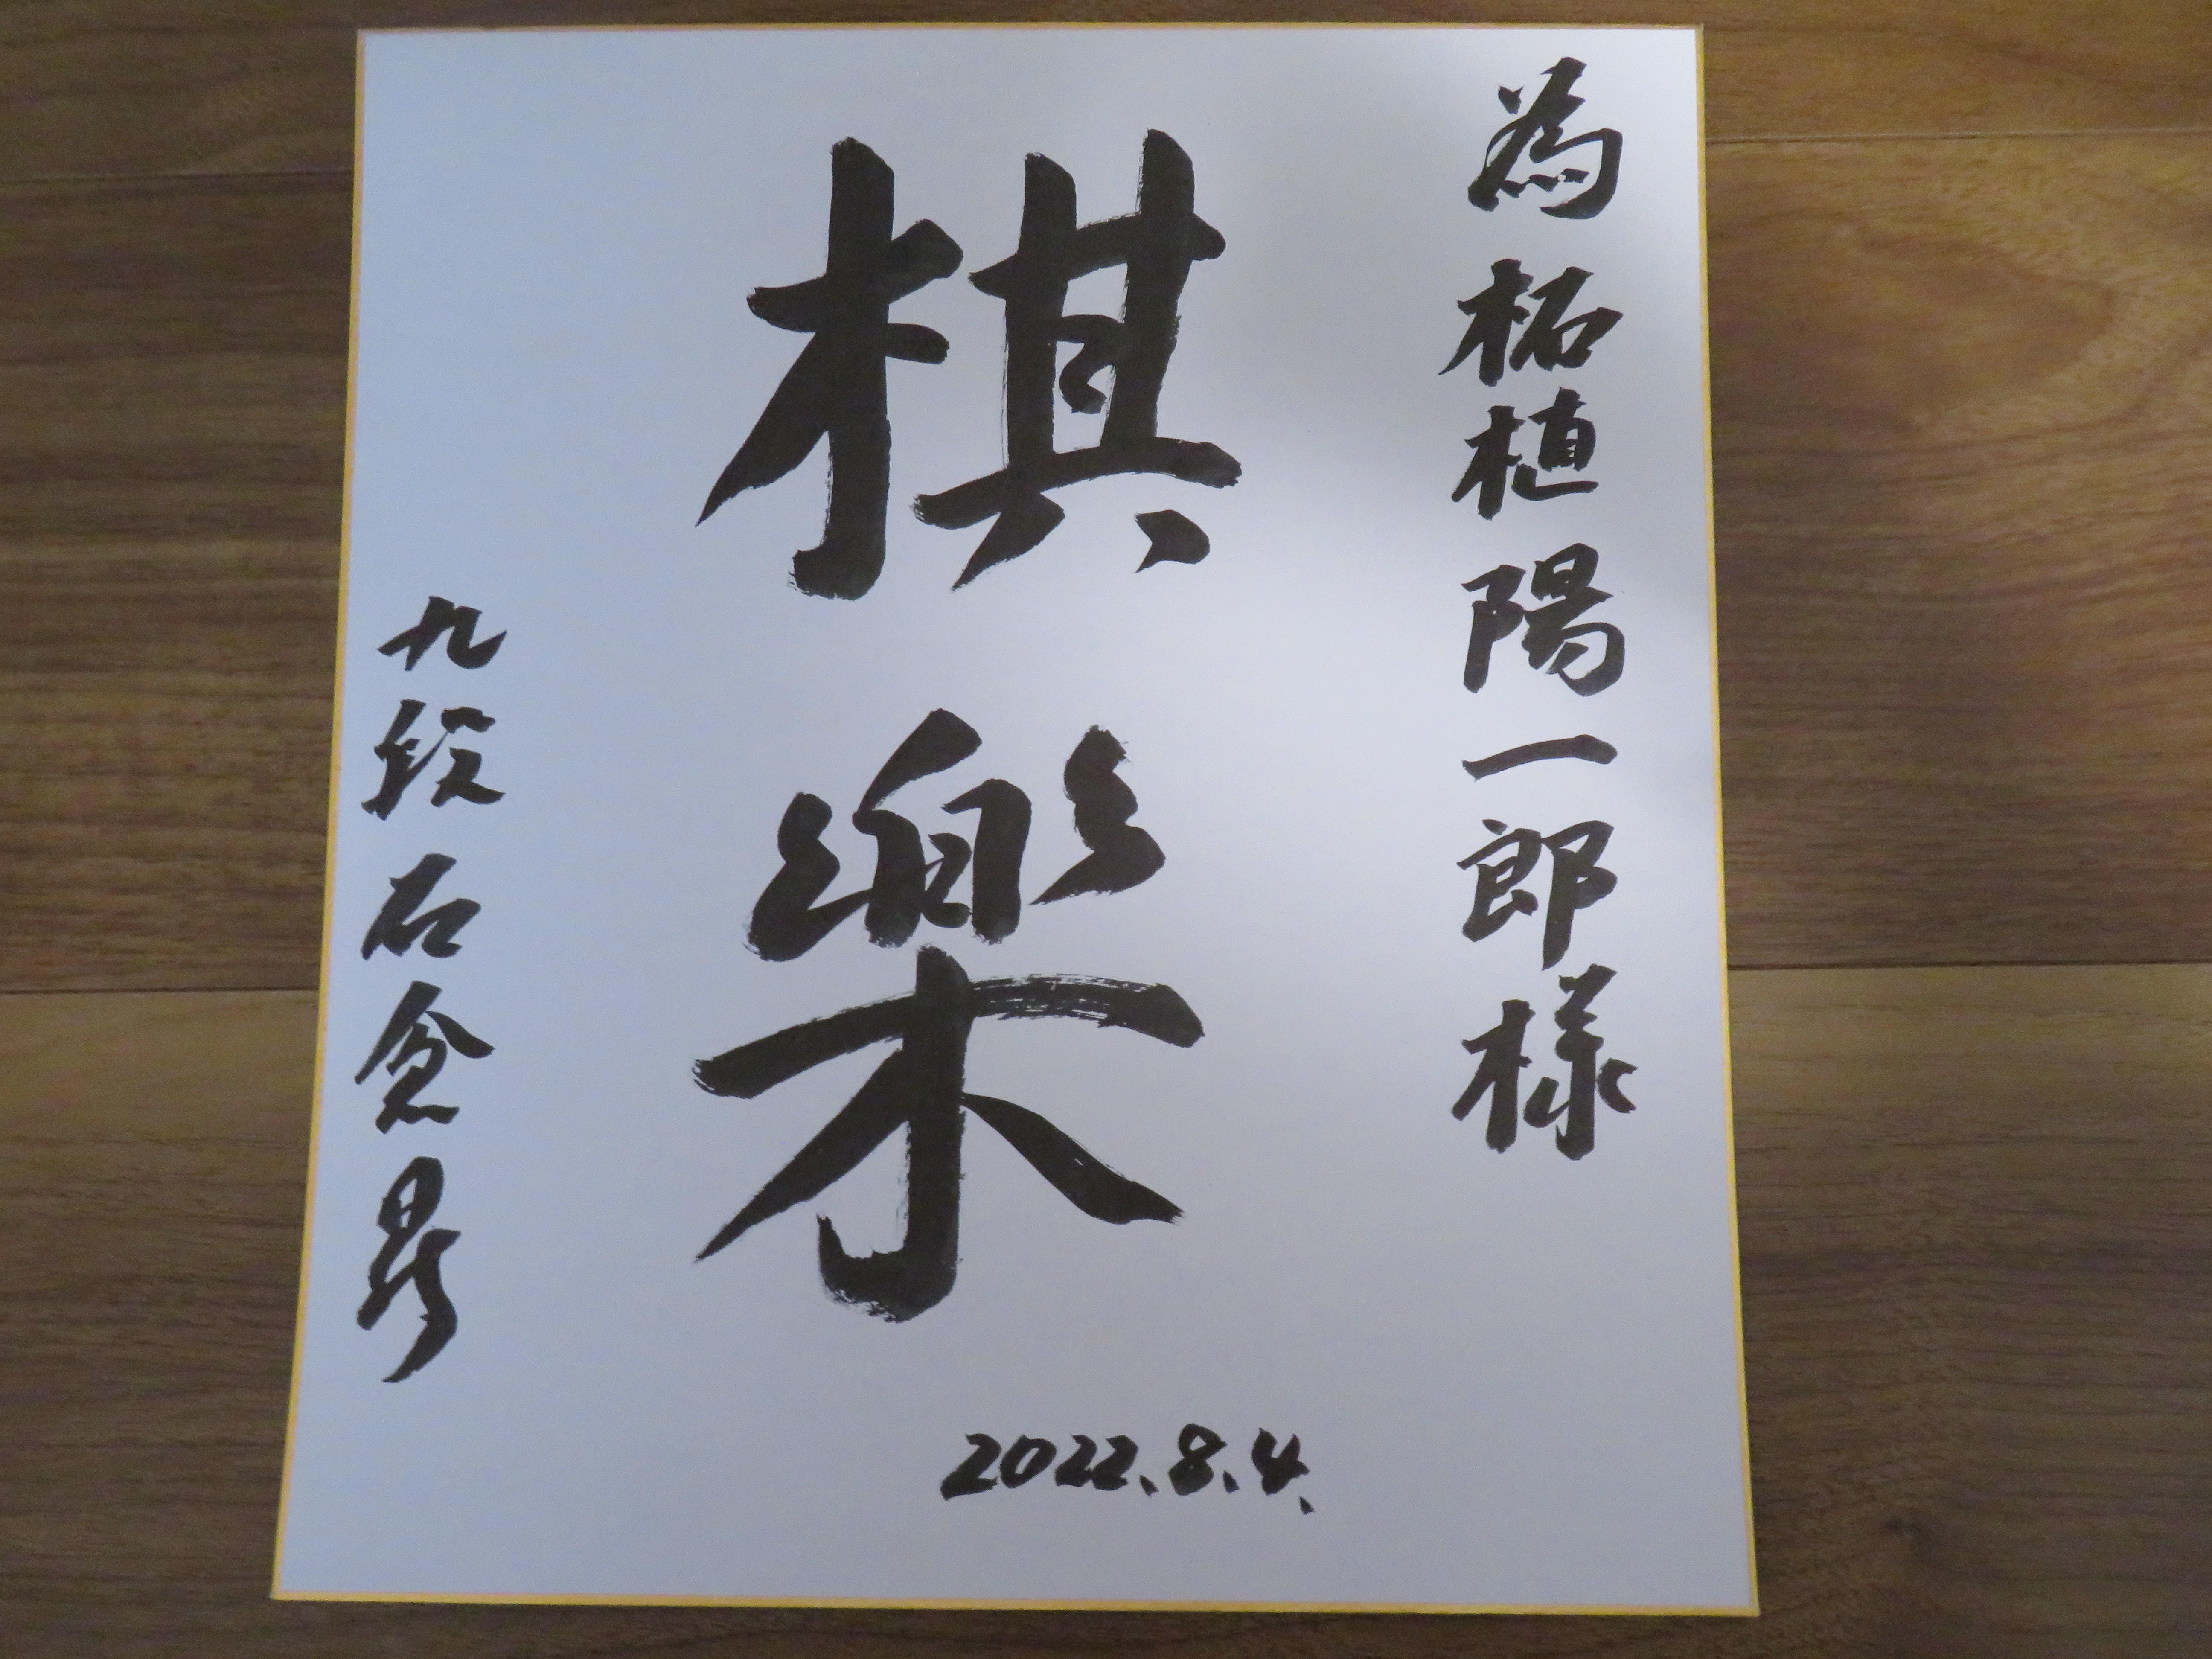 為 柘植陽一郎様
棋樂
九段 石倉昇
2022.8.4.